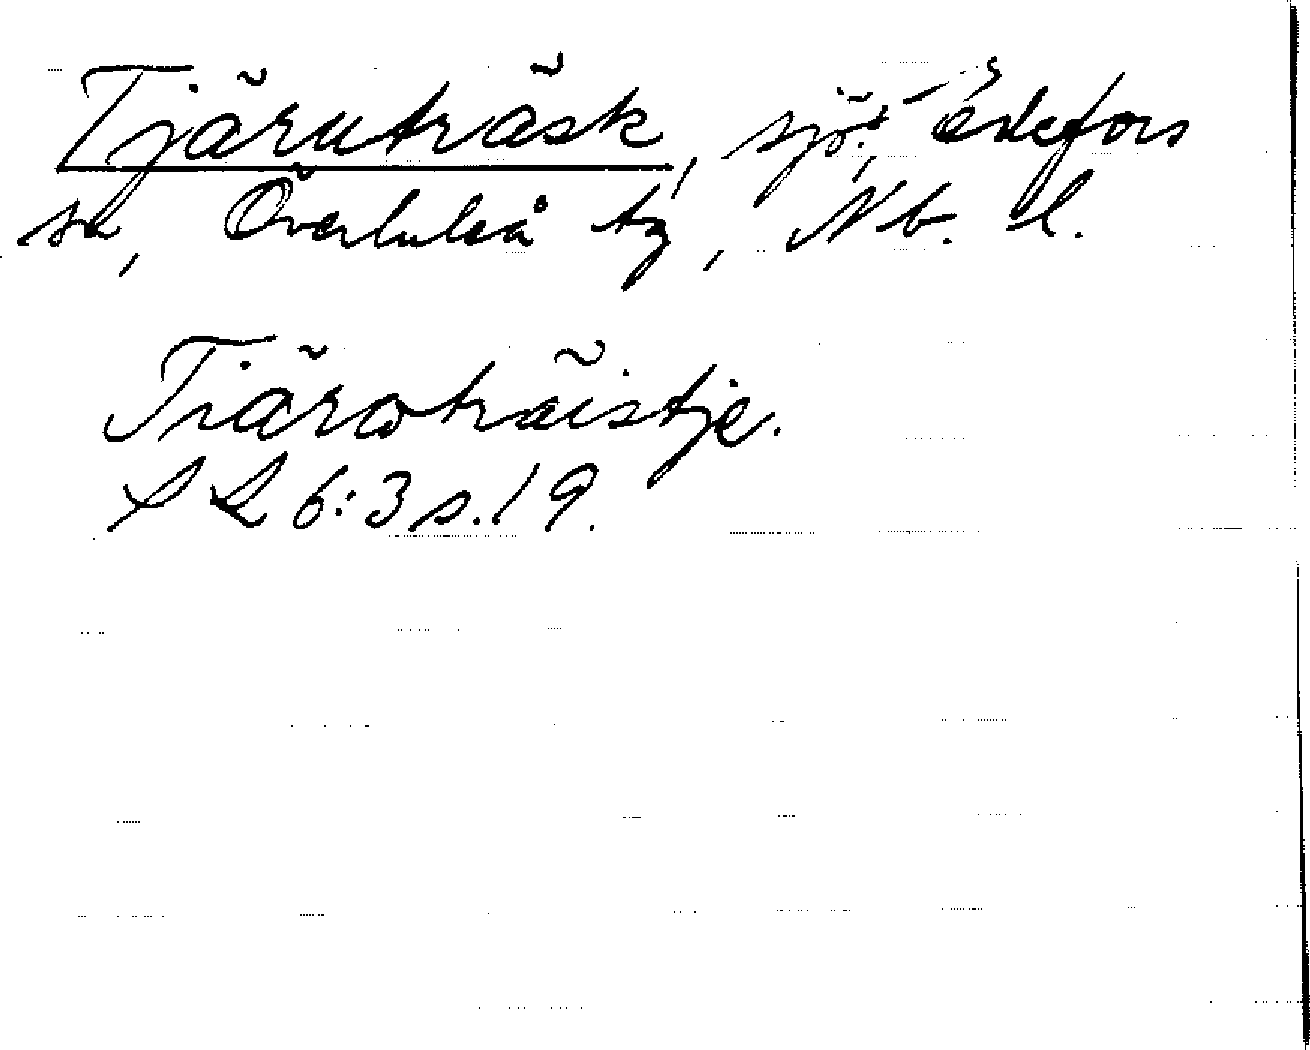 Tjäruträsk, sjö, Edefors
sn, Överluleå tg, Nb. l.
Tiärωträistje.
SL 6:3 s. 19.